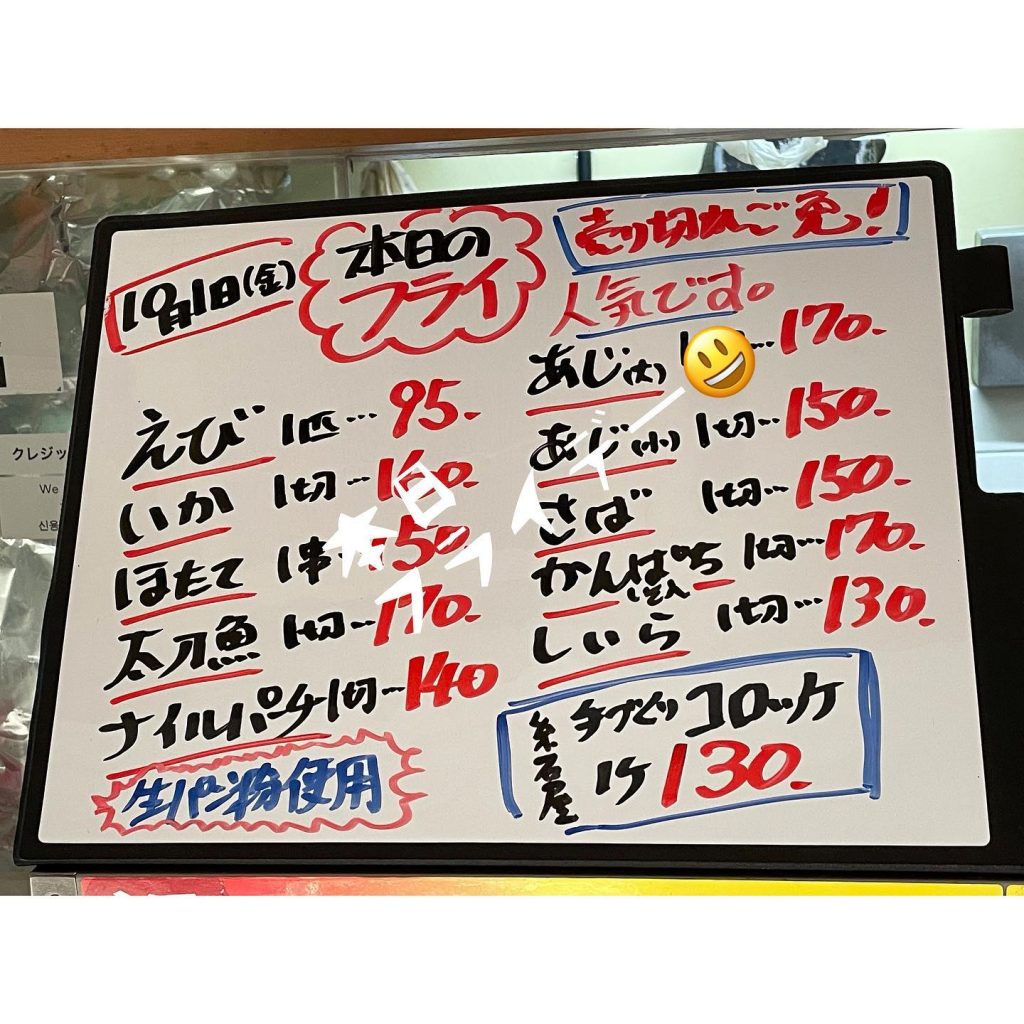 10月1日(金)
本日の
フライ
売り切れご免!
人気です。
えび 1匹…95.
いか 1切…160.
ほたて 1串 50.
太刀魚 1切…170.
ナイルパーチ 1切…140
生パン粉使用
あじ(大) 1 …170.
あじ(小) 1切…150.
さば 1切…150.
かんぱち 1切…170.
しいら 1切…130.
手づくりコロッケ
1ケ 130.
本日
フライデー
クレジッ
We
신용